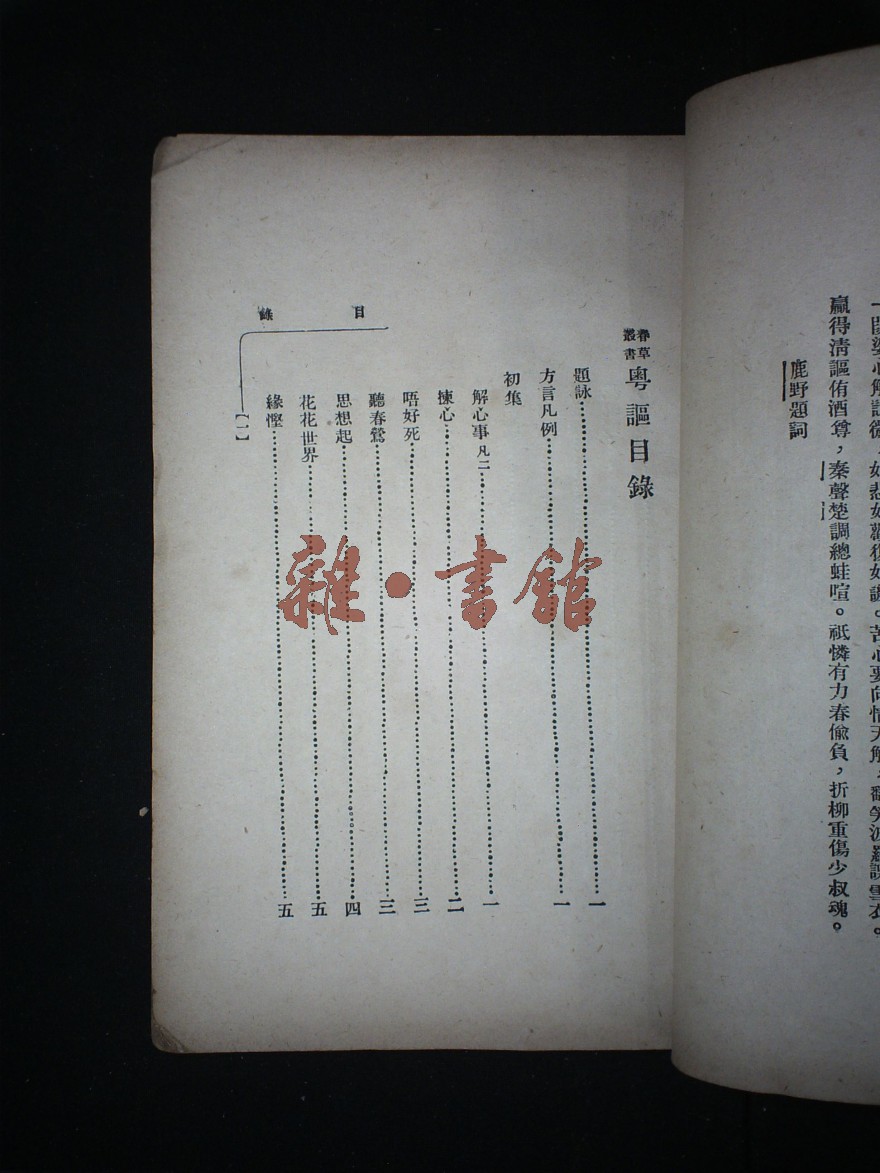 贏得清謳侑酒尊，秦聲楚調總蛙喧。祇憐有力春偸負，折柳重傷少叔魂。
鹿野題詞
春草叢書 粵謳目錄
題詠……一
方言凡例……一
初集
解心事 凡二……一
揀心……二
唔好死……三
聽春鶯……三
思想起……四
花花世界……五
緣慳……五
目錄
【一】
雜·書館